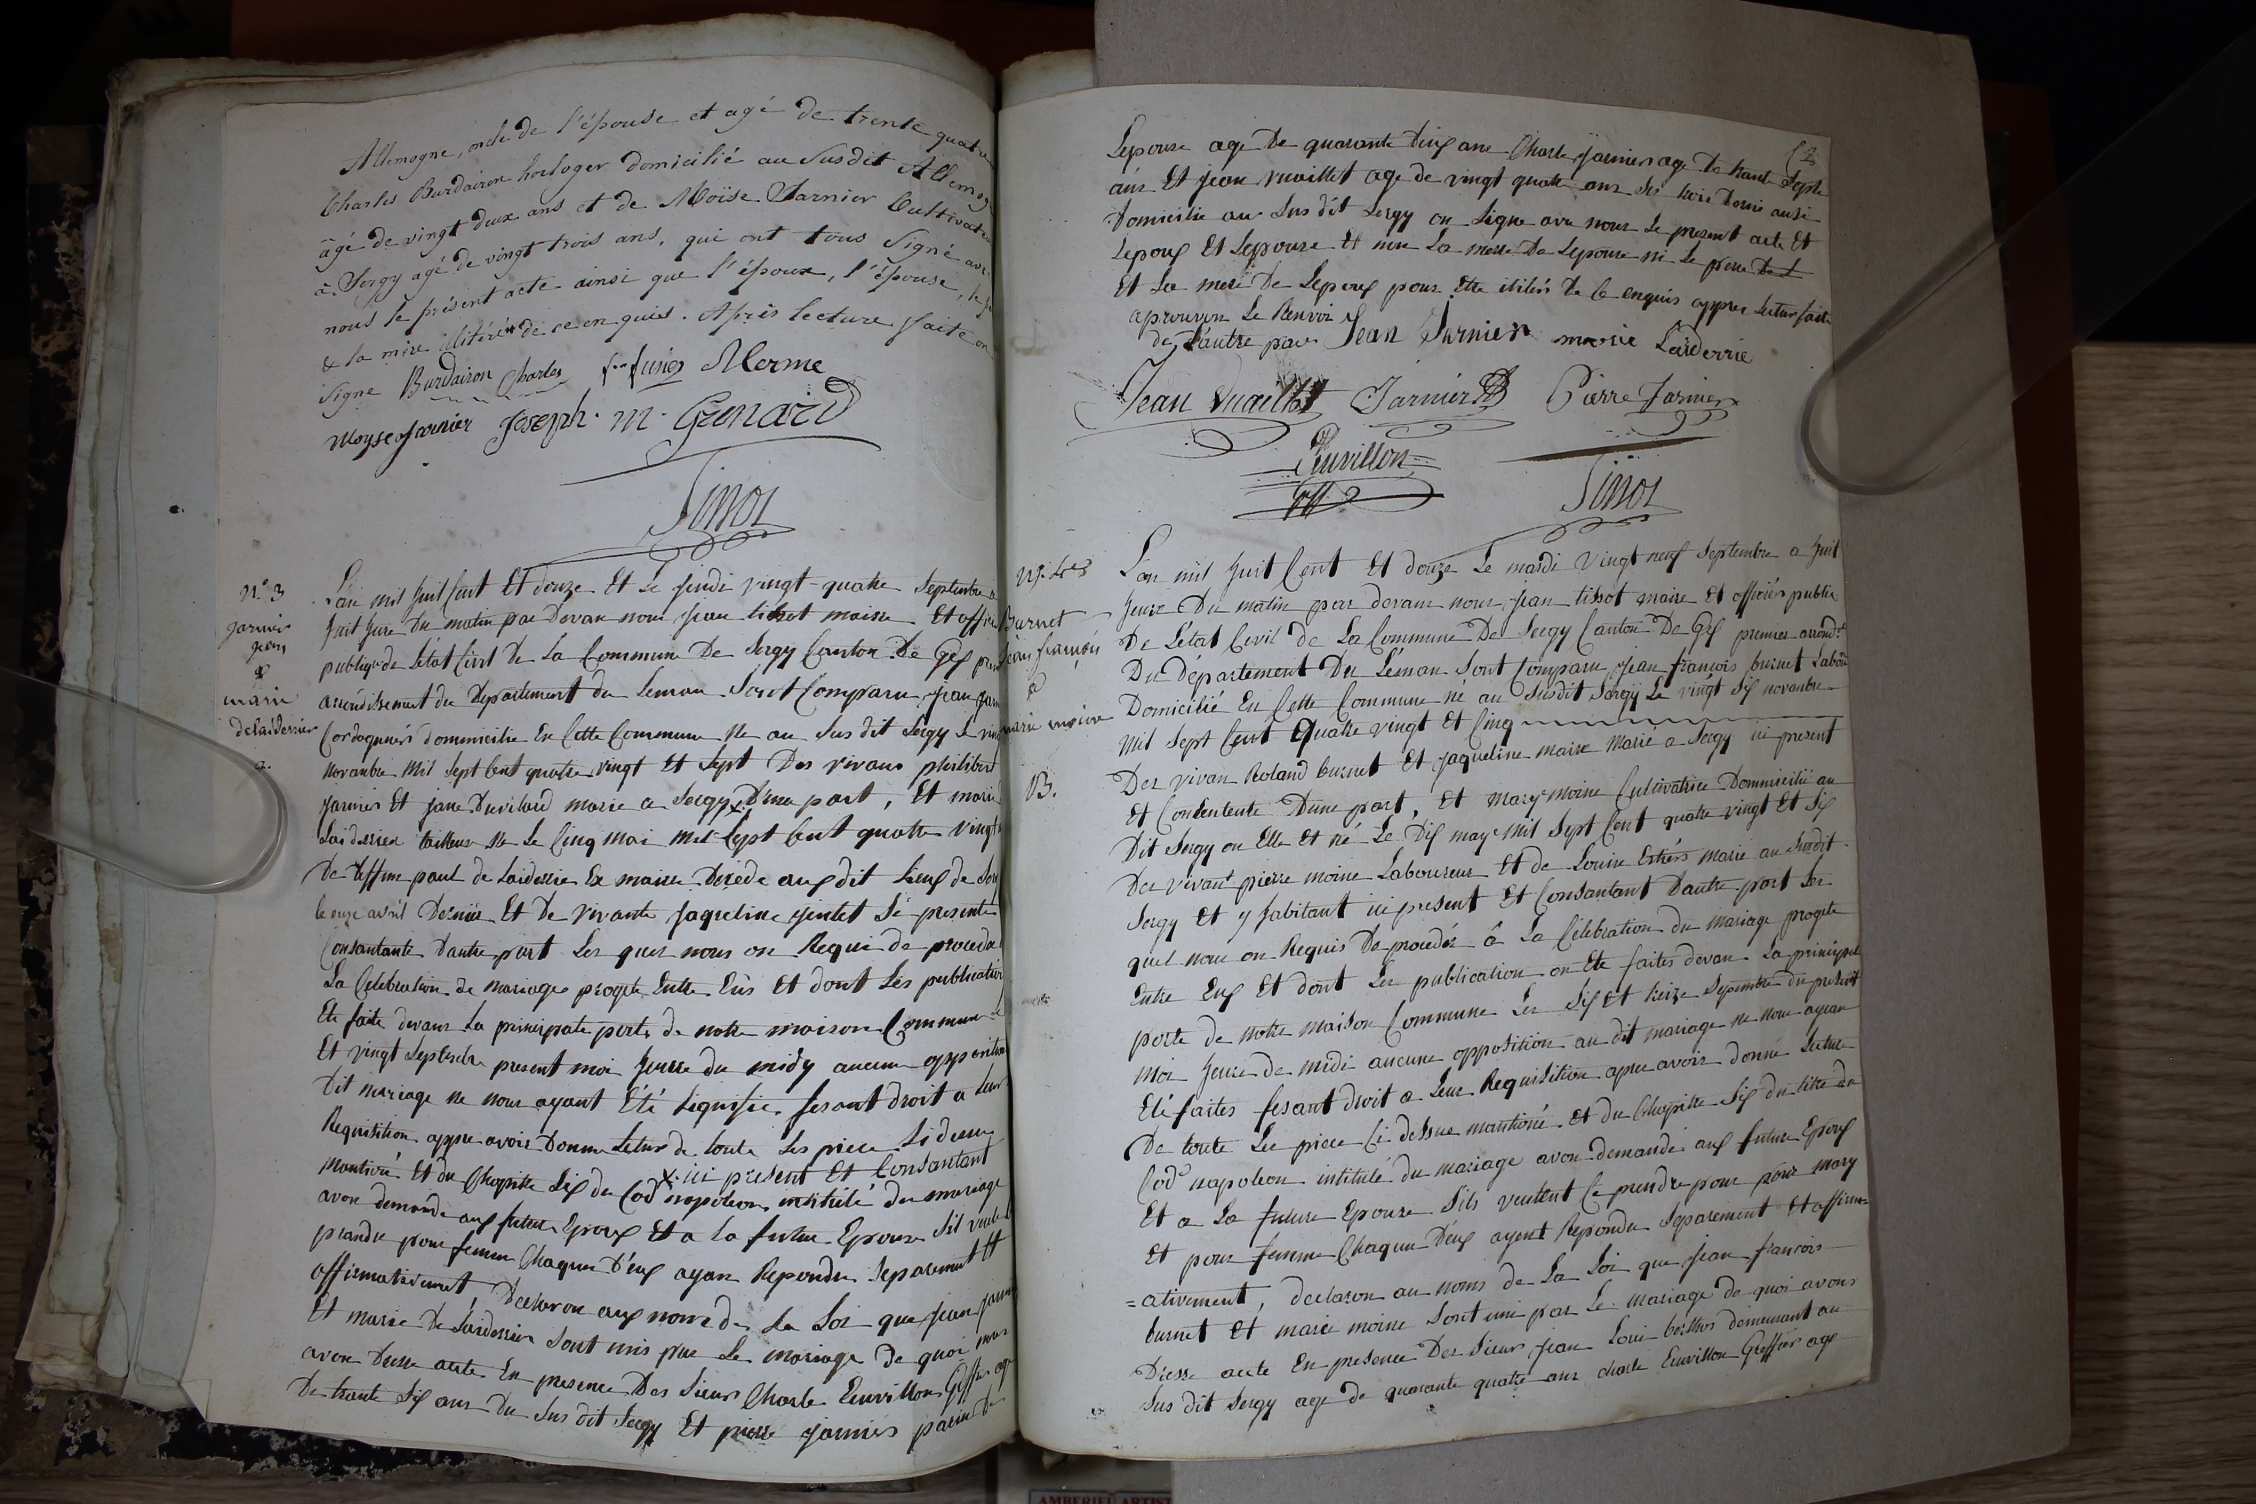 Allemogne, oncle de l'épouse et agé de trente quatre
Charles Burdairon horloger domicilié au susdit Allemogne
âgé de vingt deux ans et de Moïse Jarnier Cultivateur
à Sergy agé de vingt trois ans, qui ont tous Signé avec
nous le présent acte ainsi que l'époux, l'épouse,
& la mère illitérés de ce enquis. Après lecture faite on
Signe Burdairon Charles Merme
Moyse Jarnier Joseph. M. Grenard
Tissot
N.° 3
Jarnier
jean
&
marie
delaiderrier
L'an mil huit Cent Et douze Et Le jeudi vingt-quatre Septembre a
huit hure du matin par Devan nous jean tissot maire Et officier
publique de Létat Civil De La Commune De Sergy Canton De Gex
arrondissement du Departement du Leman Sont Comparu jean jarn
Cordognier domicilie En Cette Commune Ne au Sus dit Sergy Le vin
novanbre Mil Sept Cent quatre vingt Et Sept Des vivans philibert
jarnier Et jane Duvilard marie a Sergy x Dune part, Et marie
Laiderier tailleuse Ne Le Cinq Mai Mil Sept Cent quatre vingt
De deffun paul de Laiderrie Ex maire Déséde aux dit Lieux de Ser
le onze avril Dernier Et De vivante Jaqueline gintet Si-presente
Consantante Dautre part Les quel nous on Requi de proceder
La Celebration de Mariage progete Entre Eus Et dont Les publication
Ete faite devant La principale porte de notre maison Commune
Et vingt Septembre present moi heure du midy aucune opposition
Dit Mariage ne nous ayant Eté Signifie fesant droit a Leur
Requisition appre avoir Donné Letur de toute Les piece Sidesus
Mantioné Et du Chapitre Six du Cod napoleon intitulé du mariage
x ici present Et Consantant
avon demandé aux futur Epoux Et a la futur Epouse Sil veule
prandre pour femme Chaqun D'eux ayan Repondu Separement Et
affirmativement, Declaron aux nom de La Loi que jean jarn
Et marie De Laiderrier Sont unis par Le mariage de quoi nous
avon Dresse acte En presence Des Sieur Charle Emvillon Greffier age
De trante Six ans du Sus dit Sergy Et pierre jarnier parin De
Lepouse age De quarante Dix ans Charle jarnier age de trante Septe
ans Et jean vuaillet age de vingt quatre ans les trois Demi ausi
Domicilie au Sus dit Sergy on Signe avec nous Le present acte Et
Lepoux Et Lepouse Et non La mere De Lepouse ni Le pere
Et La mere De Lepoux pour Etre ilitéré De Ce enquis appres Lectur faite
aprouvon Le Renvoi
de L'autre par Jean Jarnier marie Laiderrie
Jean Vuaillet Jarnier Pierre Jarnier
Emvillon
Tissot
Burnet
jean françois
&
marie moine
B.
L'an mil huit Cent Et douze Le mardi vingt neuf Septembre a huit
heure Du matin par devans nous jean tissot maire Et officier public
De L'état Civil de La Commune De Sergy Canton De Gex premier arrond.t
Du Département Du Léman Sont Comparu jean françois burnet Labou
Domicilié En Cette Commune né au Susdit Sergy Le vingt Six novanbre
Mil Sept Cent Quatre vingt Et Cinq
Des vivan Roland burnet Et jaqueline maire Marié a Sergy ici present
Et Consentente Dune part, Et Mary Moine Cultivatrice Dommicilié au
Dit Sergy ou Elle Et né Le Dix may Mil Sept Cent quatre vingt Et Six
Des vivant pierre moine Laboureur Et de Louise Estiers Marie au Susdit
Sergy Et y habitant ici present Et Consantant Dautre part Les
quel nous on Requis De procedér â La Célébration du Mariage progete
Entre Eux Et dont Les publication on Ete faites devan La principale
porte de notre Maison Commune Les Six Et treize Septembre du present
Moi heure de midi aucune opposition au dit mariage ne nous ayan
Eté faites fesant droit a Leur Requisition apres avoir donné Lectur
De toute Les piece Ci dessus mantioné Et du Chapitre Six du titre du
Cod.e napoleon intitulé du mariage avon demandé aux futur Epoux
Et a La future Epouse Sils veulent Ce prendre pour pour Mary
Et pour femme Chaqun D'eux ayent Repondu Separement Et affirm=
=ativement, declaron au nom de La Loi que jean francois
burnet Et marie moine Sont uni par Le mariage de quoi avons
Dresse acte En presence Des Sieur jean Loui demeurant au
Sus dit Sergy age de quarante quatre ans charle Emvillon Greffier age